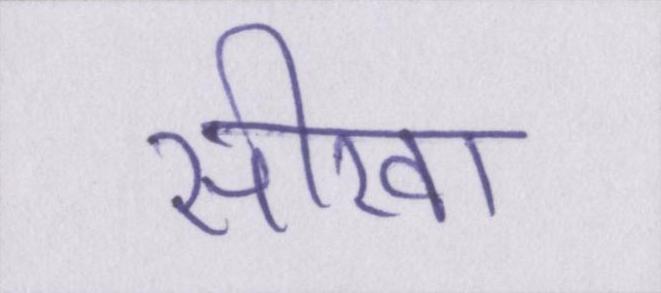 सीखा